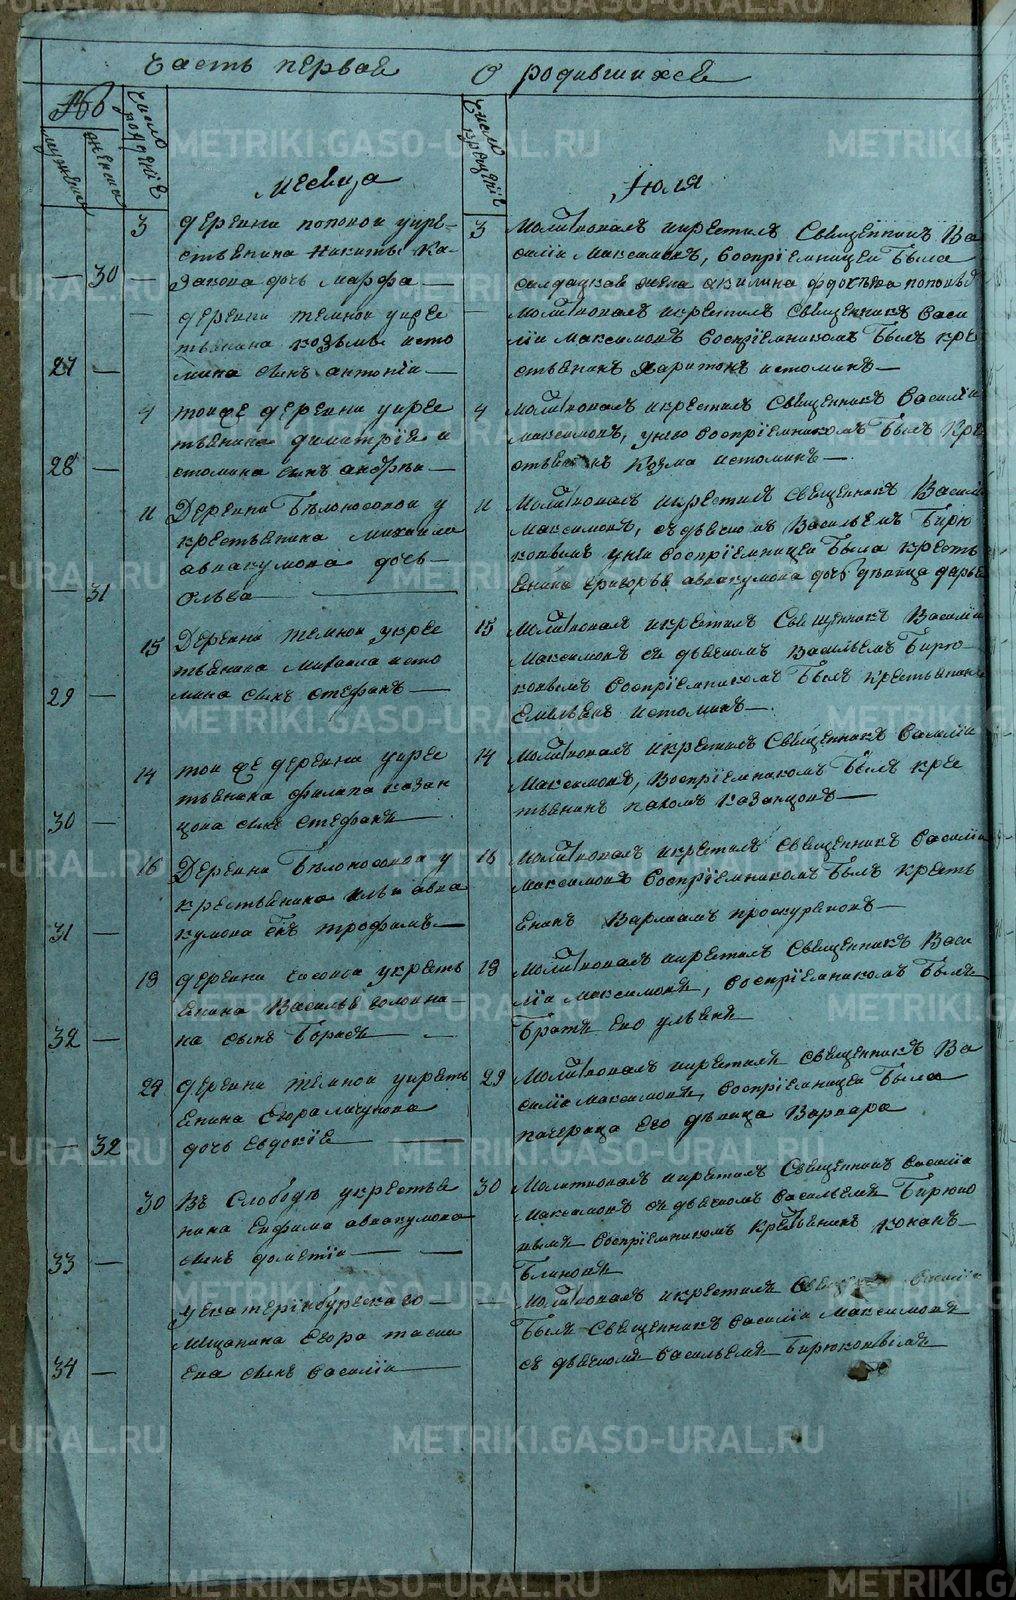 Часть первая О родившихся
№
мужеска
женска
число рождения
число крещения
Месяца Июля
3 деревни поповой у кре-
стьянина никиты ка-
30 закова дочь марфа
3 Молитвовалъ и крестилъ Священникъ Ва
силiй Максимовъ, воспрiемницей была
солдацкая жена акилина
деревни темной у кресть
тьянина козьмы исто
27 мина сынъ антонiй
молитвовалъ и крестилъ священникъ васи
лiй максимовъ воспрiемникомъ былъ кре
стьянинъ харитонъ истоминъ
4 тойже деревни у кресть
тьянина димитрiя и
28 стомина сынъ андрей
4 Молитвовалъ и крестилъ Священникъ Василiй
максимовъ, у него воспрiемникомъ былъ Кре
стьянинъ Козма истоминъ
11 Деревни Белоносовой у
крестьянина михаила
авакумова дочь
31 Ольга
11 Молитвовалъ и крестилъ священникъ Василiй
Максимовъ, съ дьячкомъ Васильемъ Бирю
ковымъ у нея воспрiемницей была кресть
янина григорья авакумова дочь девица дарья
15 Деревни темной у кресть
тьянина михаила исто
29 мина сынъ стефанъ
15 Молитвовалъ и крестилъ Священникъ Василiй
Максимовъ съ дьячкомъ Васильемъ Бирю
ковымъ воспрiемникомъ былъ крестьянинъ
Емельянъ истоминъ
14 той же деревни у кресть
тьянина филипа казан
30 цова сынъ стефанъ
14 молитвовалъ и крестилъ Священникъ василiй
Максимовъ, Воспрiемникомъ былъ крес
тьянинъ пахомъ казанцовъ
16 Деревни Белоносовой у
крестьянина ильи авва
31 кумова сынъ трофимъ
16 Молитвовалъ и крестилъ священникъ василiй
максимовъ воспрiемникомъ былъ кресть
янинъ Варлаамъ проскуряковъ
19 деревни у кресть
янина Василья головина-
32 на сынъ Борисъ
19 Молитвовалъ и крестилъ Священникъ Васи
лiй максимовъ, воспрiемникомъ былъ
братъ его ульянъ
29 деревни темной у кресть
янина Егора мичурова
32 дочь евдокiя
29 Молитвовалъ и крестилъ священникъ Ва
силiй максимовъ, воспрiемницей была
падчерица его девица Варвара
30 Въ Слободе у крестья
нина Ефима авакумова
33 сынъ дометiй
30 Молитвовалъ и крестилъ Священникъ василiй
максимовъ съ дьячкомъ васильемъ Бирюко
вымъ воспрiемникомъ крестьянинъ кононъ
Блиновъ
у екатеринбурскаго
мещанина Егора
34 сынъ василiй
молитвовалъ и крестилъ василiй
былъ Священникъ василiй максимовъ
съ дьячкомъ васильемъ Бирюковымъ